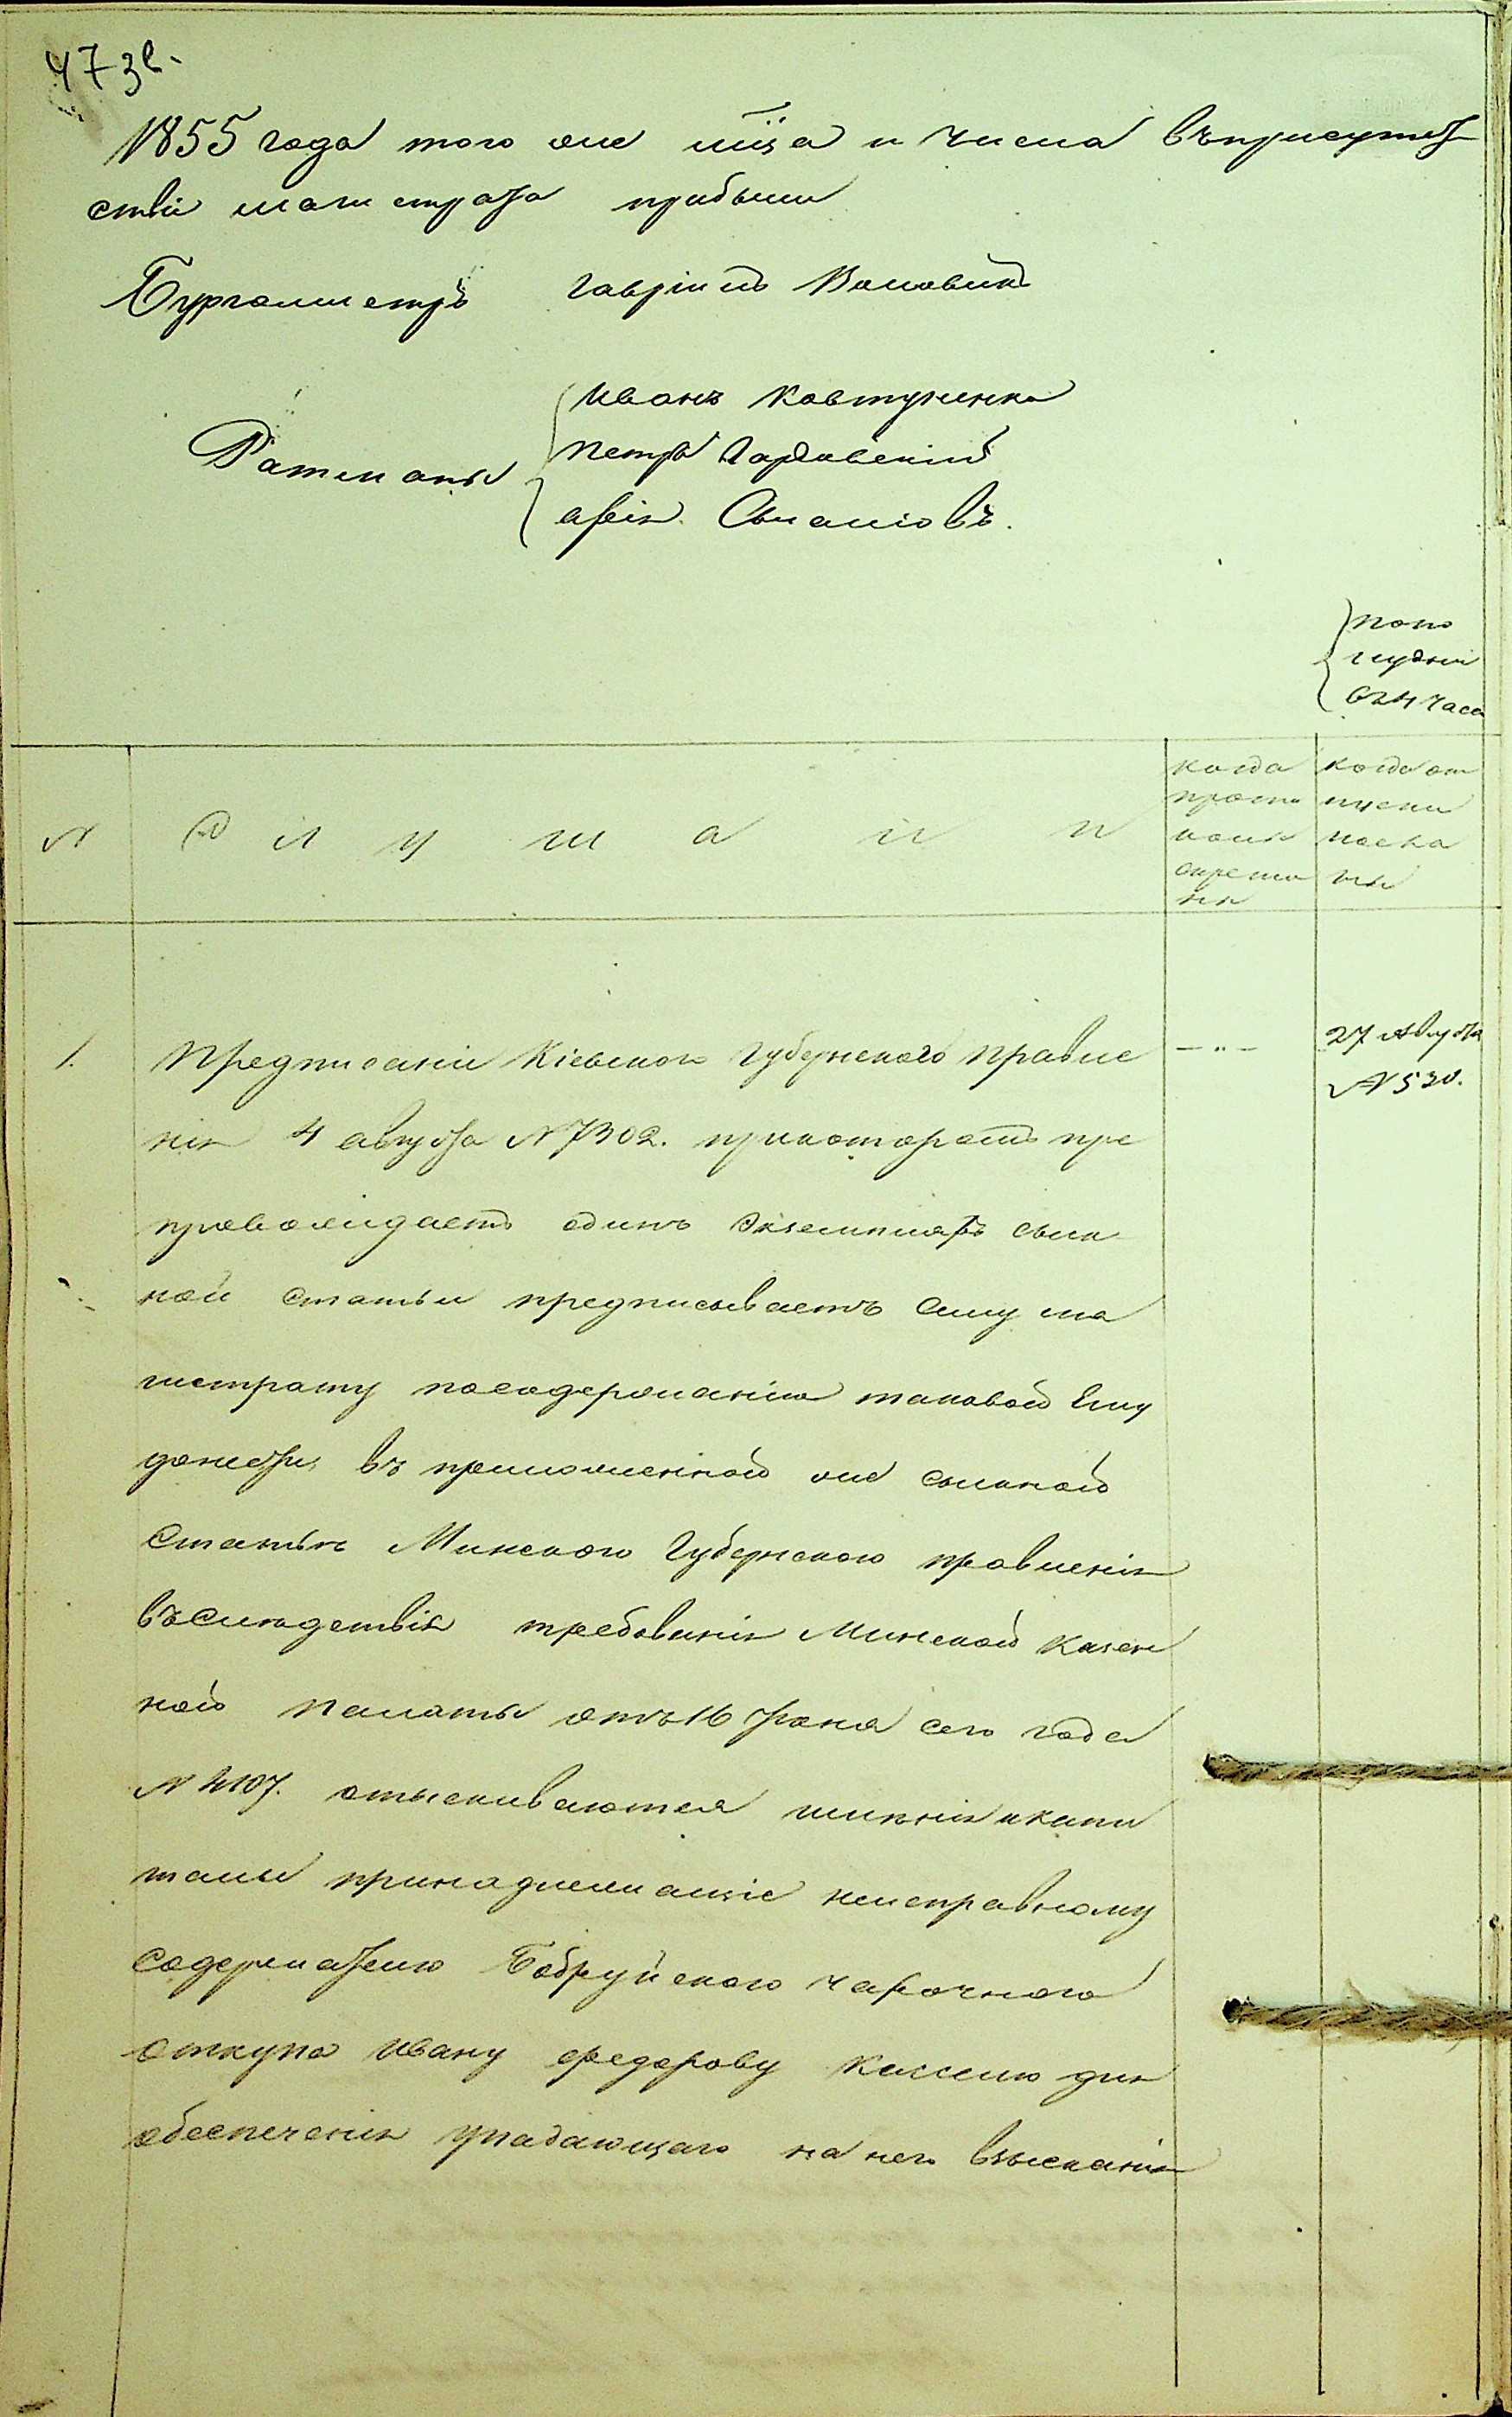 473в.
1855 года того же м͠ца и числа въ присутст
ствіи магистрата прибыли
Бургомистръ Гавріилъ Воловикъ
Иванъ Ковтуненко
Ратманы Петръ
по по
лудни
въ 4 часа
№ С л у ш а л и
когда прото колы скрепле ны
когда от пуски посла ны
1. Предписаніе Кіевского Губернского Правле
нія 4 августа № 7302. при которомъ пре
провождаетъ одинъ Экземпляръ сыск
ной статьи предписываетъ сему ма
гистрату по содержанію таковой Ему
донести, въ приложенной же сыскной
Статьи Минского Губернского правленія
въ следствія требованія Минской Казен
ной Палаты отъ 16 Іюня сего года
№ 4107. отыскиваются имѣнія и капи
талы принадлежащіе неисправному
содержателю Бобруйского чарочного
откупа Ивану Федорову для
обеспеченія упадающаго на него взысканія
— „ —
27 Августа
№ 530.